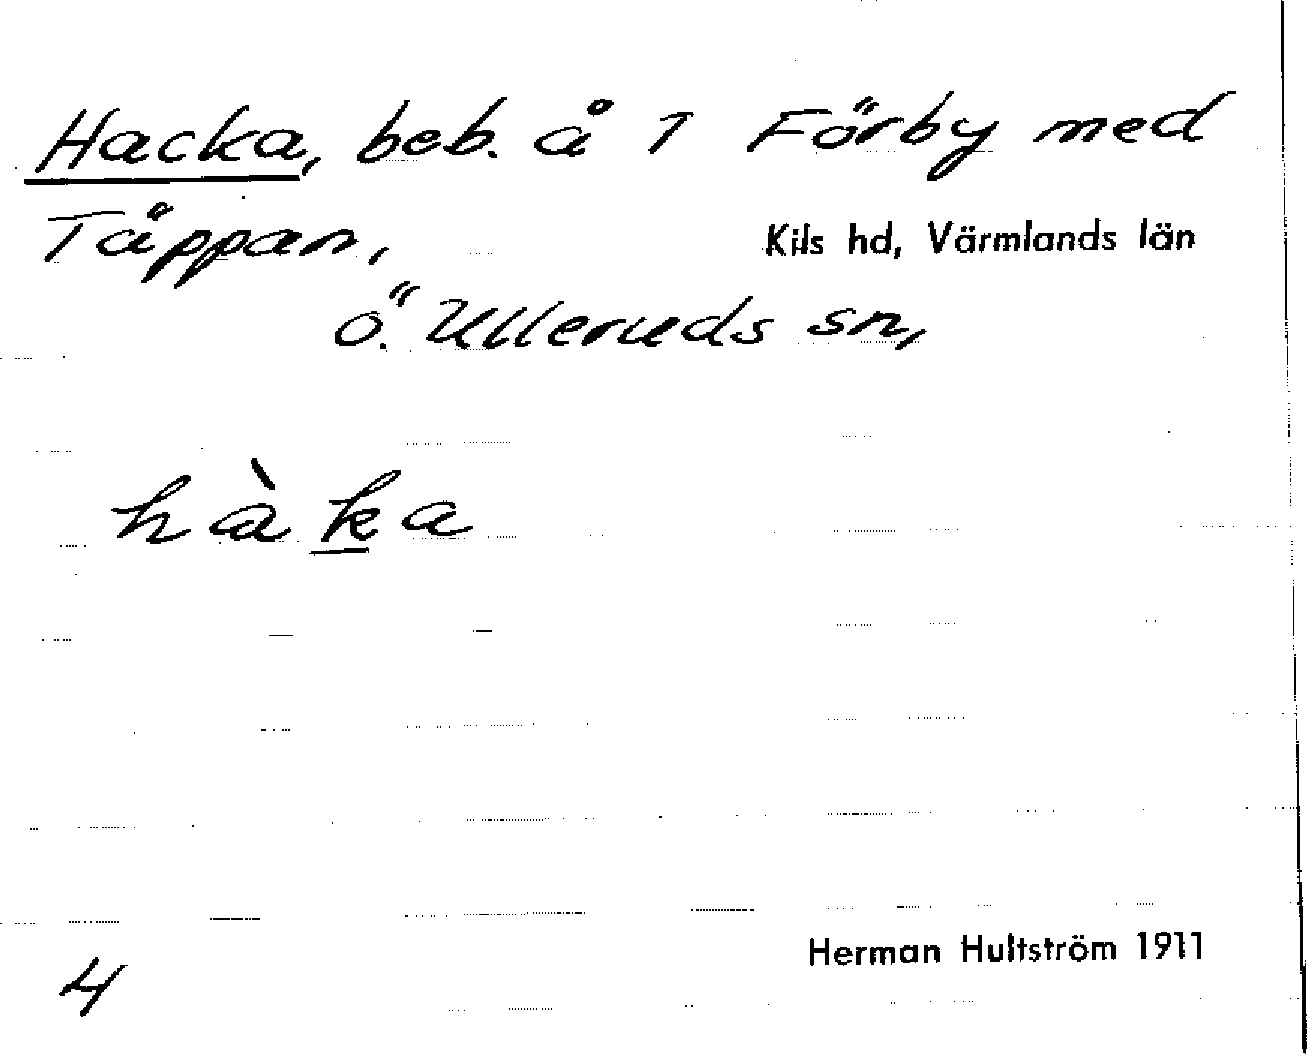 Hacka, beb. å 1 Förby med
Täppan,
Kils hd, Värmlands län
Ö. Ulleruds sn,
hàka
Herman Hultström 1911
4